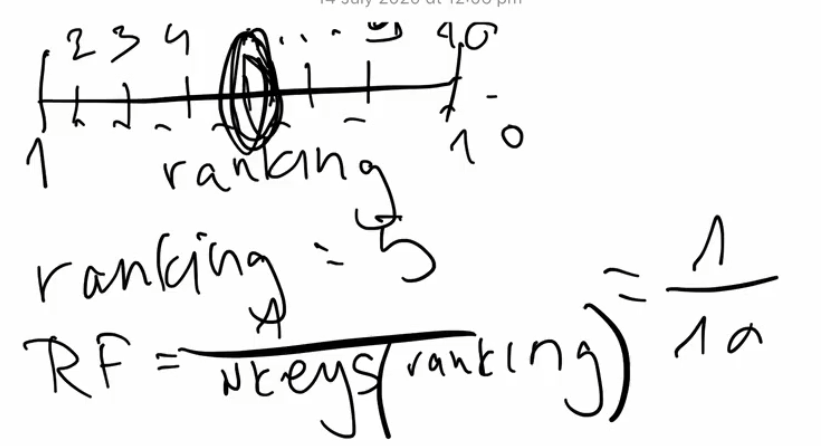 14 July 2020 at 12:00 pm
2 3 4 ... 9 10
1 10
ranking
ranking = 5
RF = 1 / Nkeys(ranking) = 1 / 10